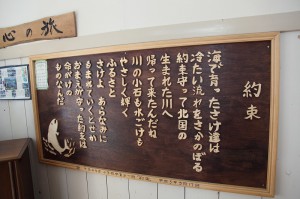 心の旅
約束
海で育ったさけ達は
冷たい流れをさかのぼる
約束守って北国の
生まれた川へ
帰って来たんだね
川の小石も水ごけも
やさしく鮮く
ふるさと
さけよ あらなみに
もまれていくとせか
おまえが守った約束は
命がけの
ものなんだ